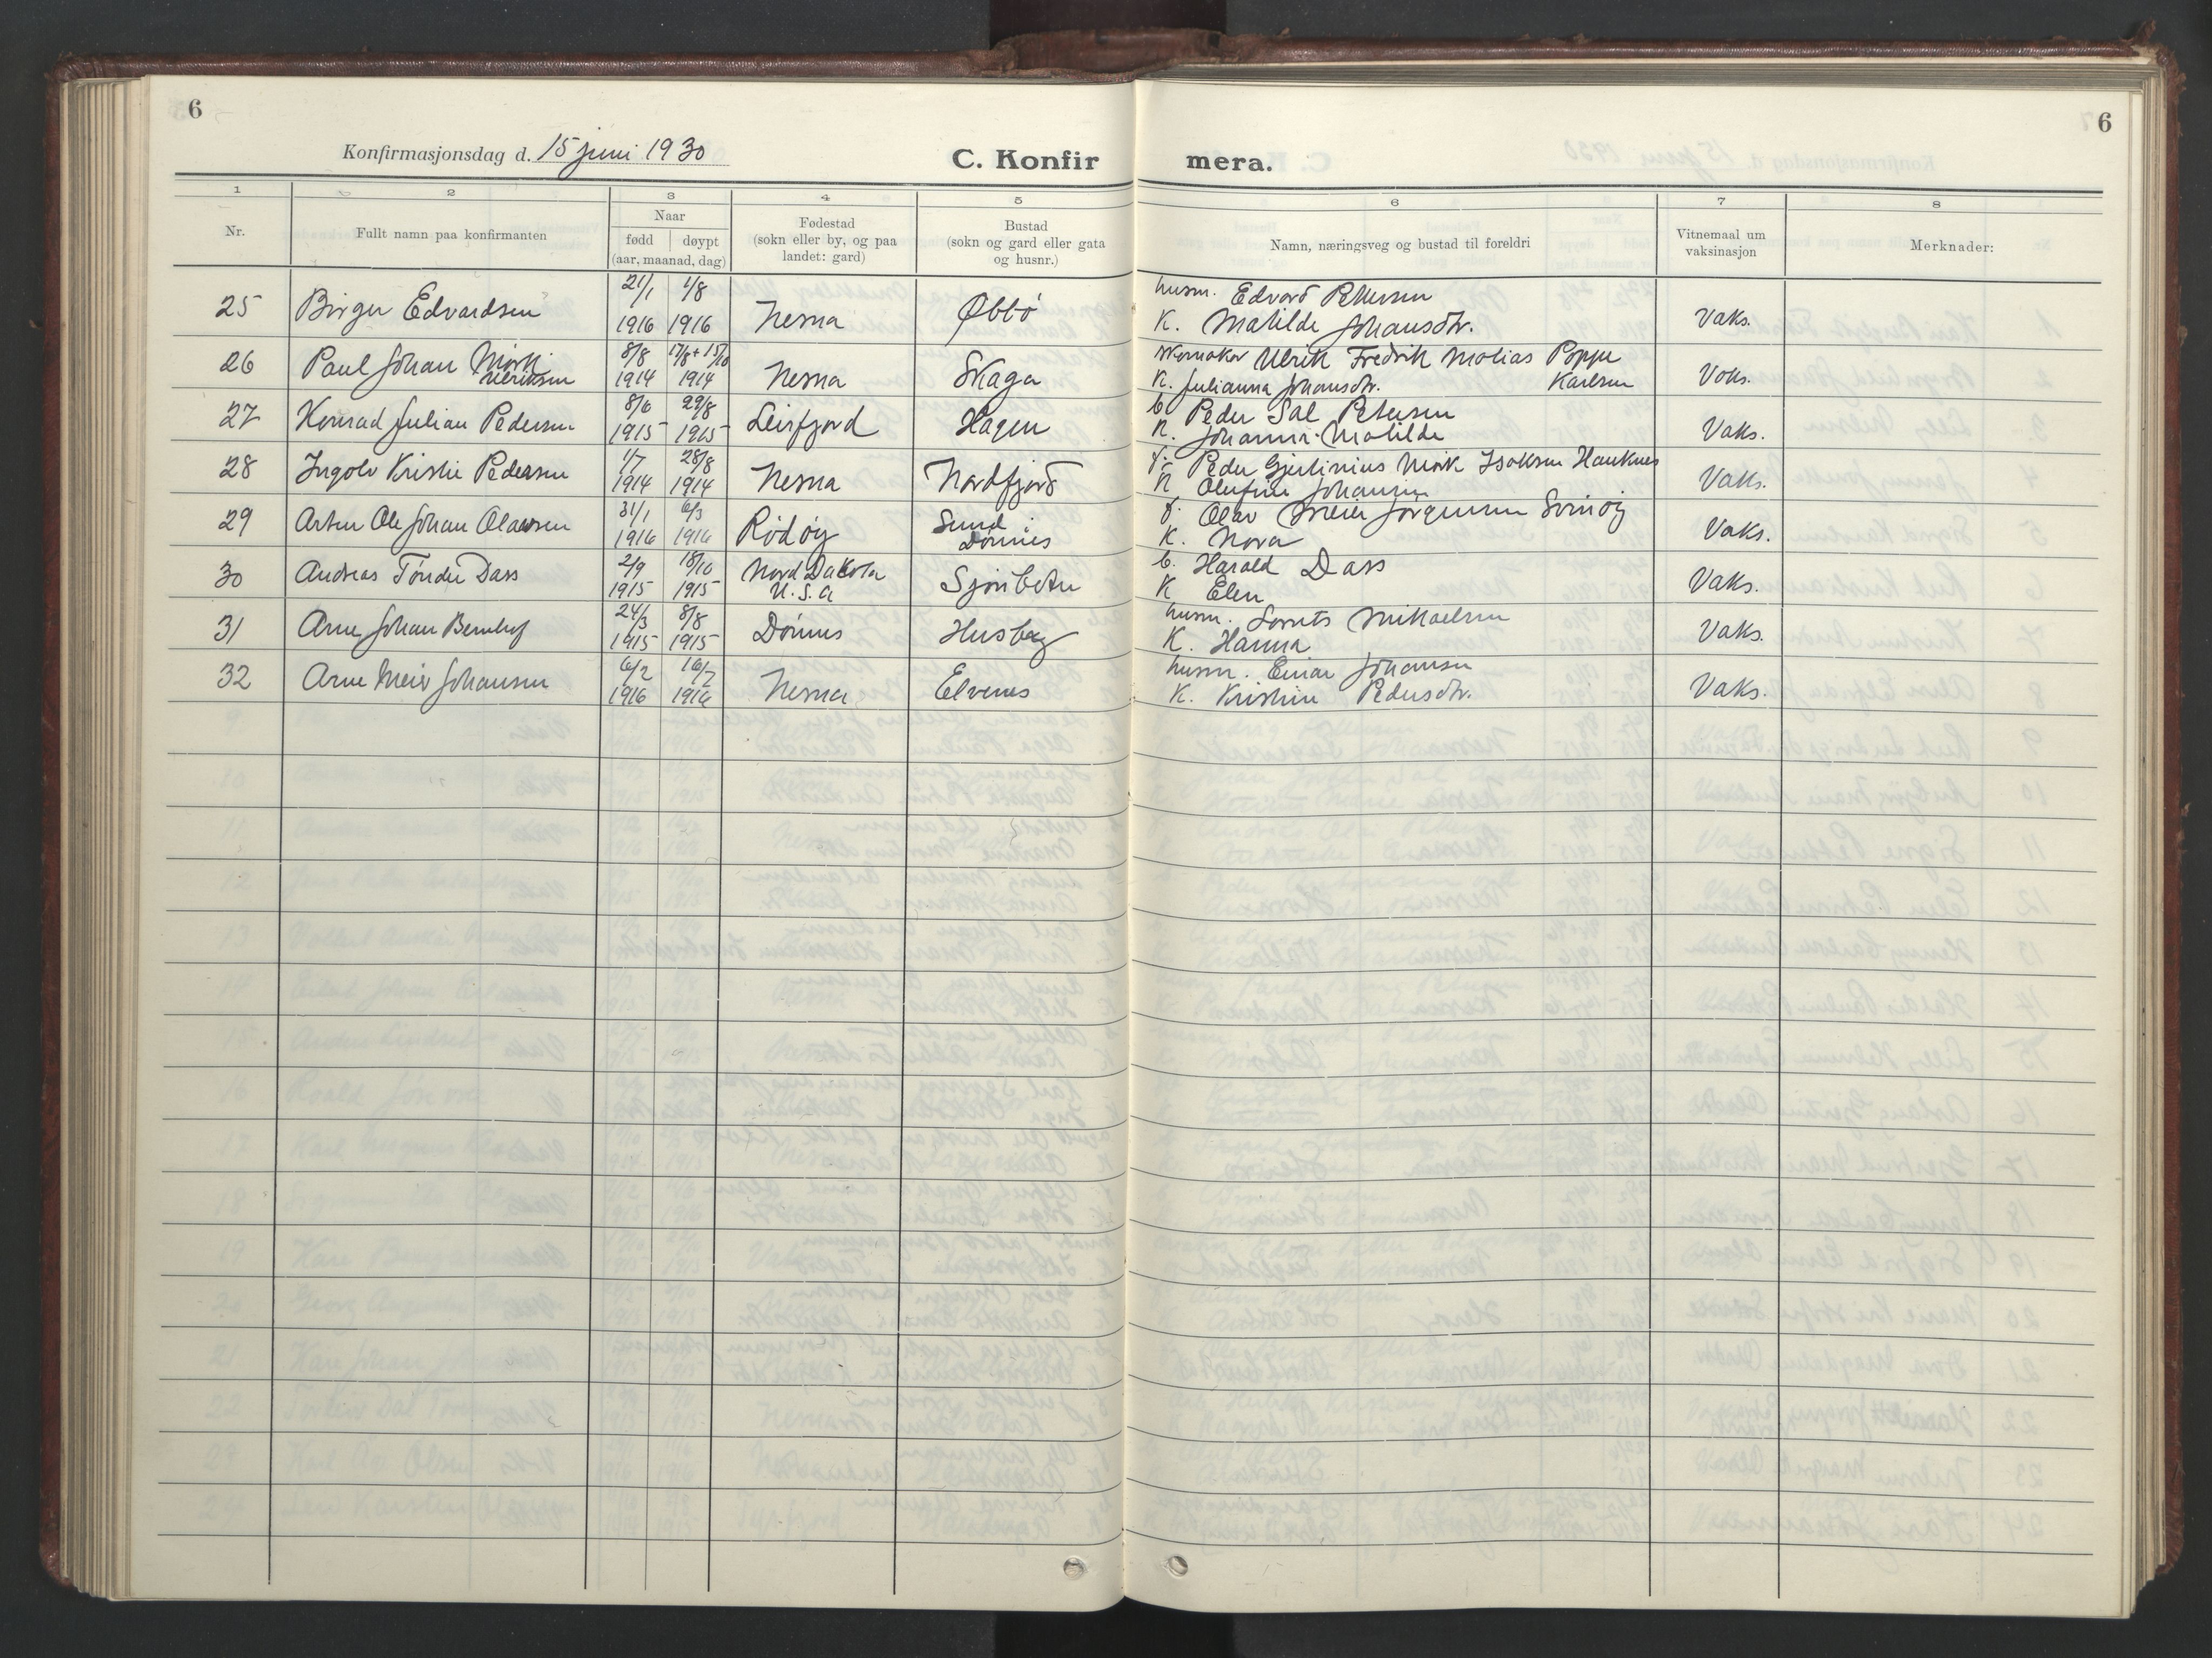 6
6
Konfirmasjonsdag d. 15 juni 1930
C. Konfir mera.
1 2 3 4 5 6 7 8
Nr.
Fullt namn paa konfirmanten
Naar
fødd døypt
(aar, maanad, dag)
Fødestad
(sokn eller by, og paa
landet: gard)
Bustad
(sokn og gard eller gata
og husnr.)
Namn, næringsveg og bustad til foreldri
Vitnemaal um
vaksinasjon
Merknader:
25 Birger Edvardsen 21/1 1916 1/8 1916 Nesna Øbbö
husm. Edvard Pettersen
K. Matilde Johansdtr. Vaks.
26 Paul Johan Mörk Ulriksen 8/8 1914 17/8 + 15/10 1914 Nesna Skaga
skomaker Ulrik Fredrik Molias Poppe Karlsen
K. Julianna Johansdtr. Vaks.
27 Konrad Julian Pedersen 8/6 1915 29/8 1915 Leirfjord Hagen
Peder Sal Petersen
K. Johanna Matilde Vaks.
28 Ingolv Kristie Pedersen 1/7 1914 28/8 1914 Nesna Nordfjord
f. Peder Gjertinius Mörk Isaksen Hauknes
K. Olufine Johansen Vaks.
29 Artur Ole Johan Olausen 31/1 1916 6/3 1916 Rödöy Sund Dönnes
f. Olav Meier Jörgensen Svinöy
K. Nora Vaks.
30 Andreas Tönder Dass 2/9 1915 18/10 1915 Nord Dakota U.S.A Sjonbotn
Harald Dass
K Elen Vaks.
31 Arne Johan Bernhof 24/3 1915 8/8 1915 Dönnes Husby
husm. Lorents Mikaelsen
K. Hanna Vaks.
32 Arne Meier Johansen 6/2 1916 16/7 1916 Nesna Elvenes
husm. Einar Johansen
K. Kristine Pedersdtr. Vaks.